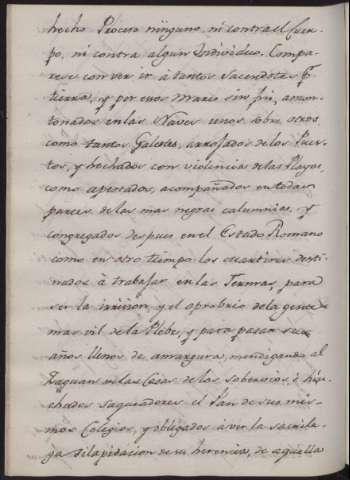 hecho Proceso ninguno, ni contra el Cuer-
po, ni contra algun Individuo. Compa
rese con ver ir à tantos Sacerdotes pr
tierra, y por esos Mares sin fin, amon-
tonados en las Naves unos sobre otros
como tantos Galeotes, arrojados de los Puer-
tos, y hechados con violencia de las Playas,
como apestados, acompañados en todas
partes de las mas negras calumnias, y
congregados despues en el Estado Romano
como en otro tiempo los Martires desti-
nados à trabajar en las Termas, para
ser la irrision, y el oprobrio de la gente
mas vil de la Plebe, y para pasar sus
años llenos de amargura, mendigando al
Zaguan en las Casas de los sobervios, è hin
chados saqueadores el Pan de sus mis
mos Colegios, y obligados à ver la sacrile-
ja dilapidacion de su herencia, de aquella